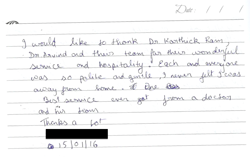 Date / /
I would like to thank Dr Karthick Ram,
Dr Aravind and their team for their wonderful
service and hospitality. Each and everyone
was so polite and gentle, I never felt I was
away from home.
Best service ever got from a doctor
and his team
Thanks a lot
15/01/16